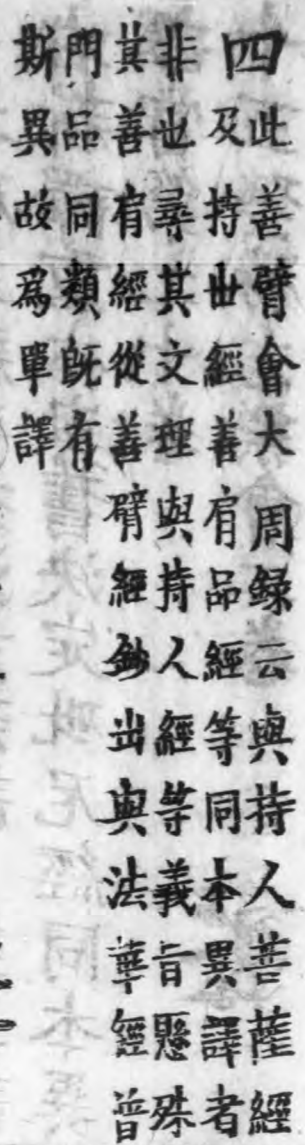 四
此善臂會大周録云與持人菩薩經
及持世經善肩品經等同本異譯者
非也尋其文理與持人經等義旨懸殊
其善肩經從善臂經鈔出與法華經普
門品同類既有
斯異故爲單譯